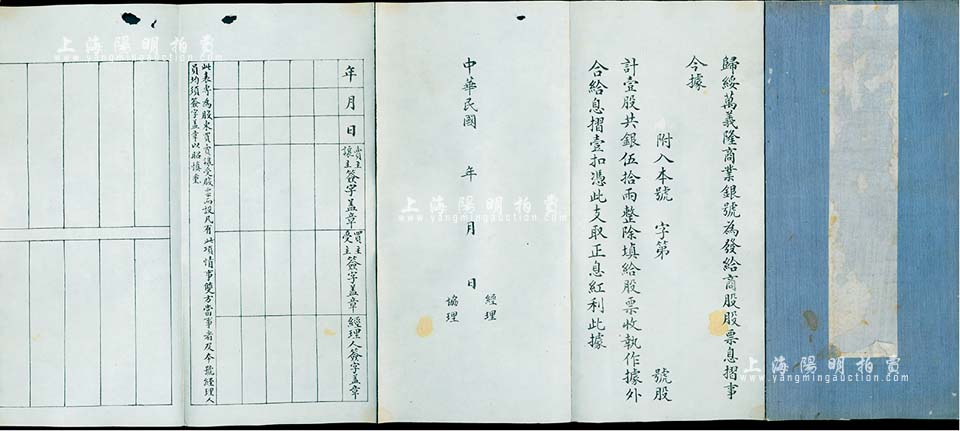 歸綏萬義隆商業銀號為發給商股股票息摺事
今據
附入本號 字第 號股
計壹股共銀伍拾兩整除填給股票收執作據外
合給息摺壹扣憑此支取正息紅利此據
中華民國 年 月 日
經理
協理
年 月 日
賣主讓主簽字蓋章
買主受主簽字蓋章
經理人簽字蓋章
此表專為股東買賣讓受股票而設凡有此項情事雙方當事者及本號經理人
員均須簽字蓋章以昭慎重
上海陽明拍賣
www.yangmingauction.com
上海陽明拍賣
www.yangmingauction.com
上海陽明拍賣
www.yangmingauction.com